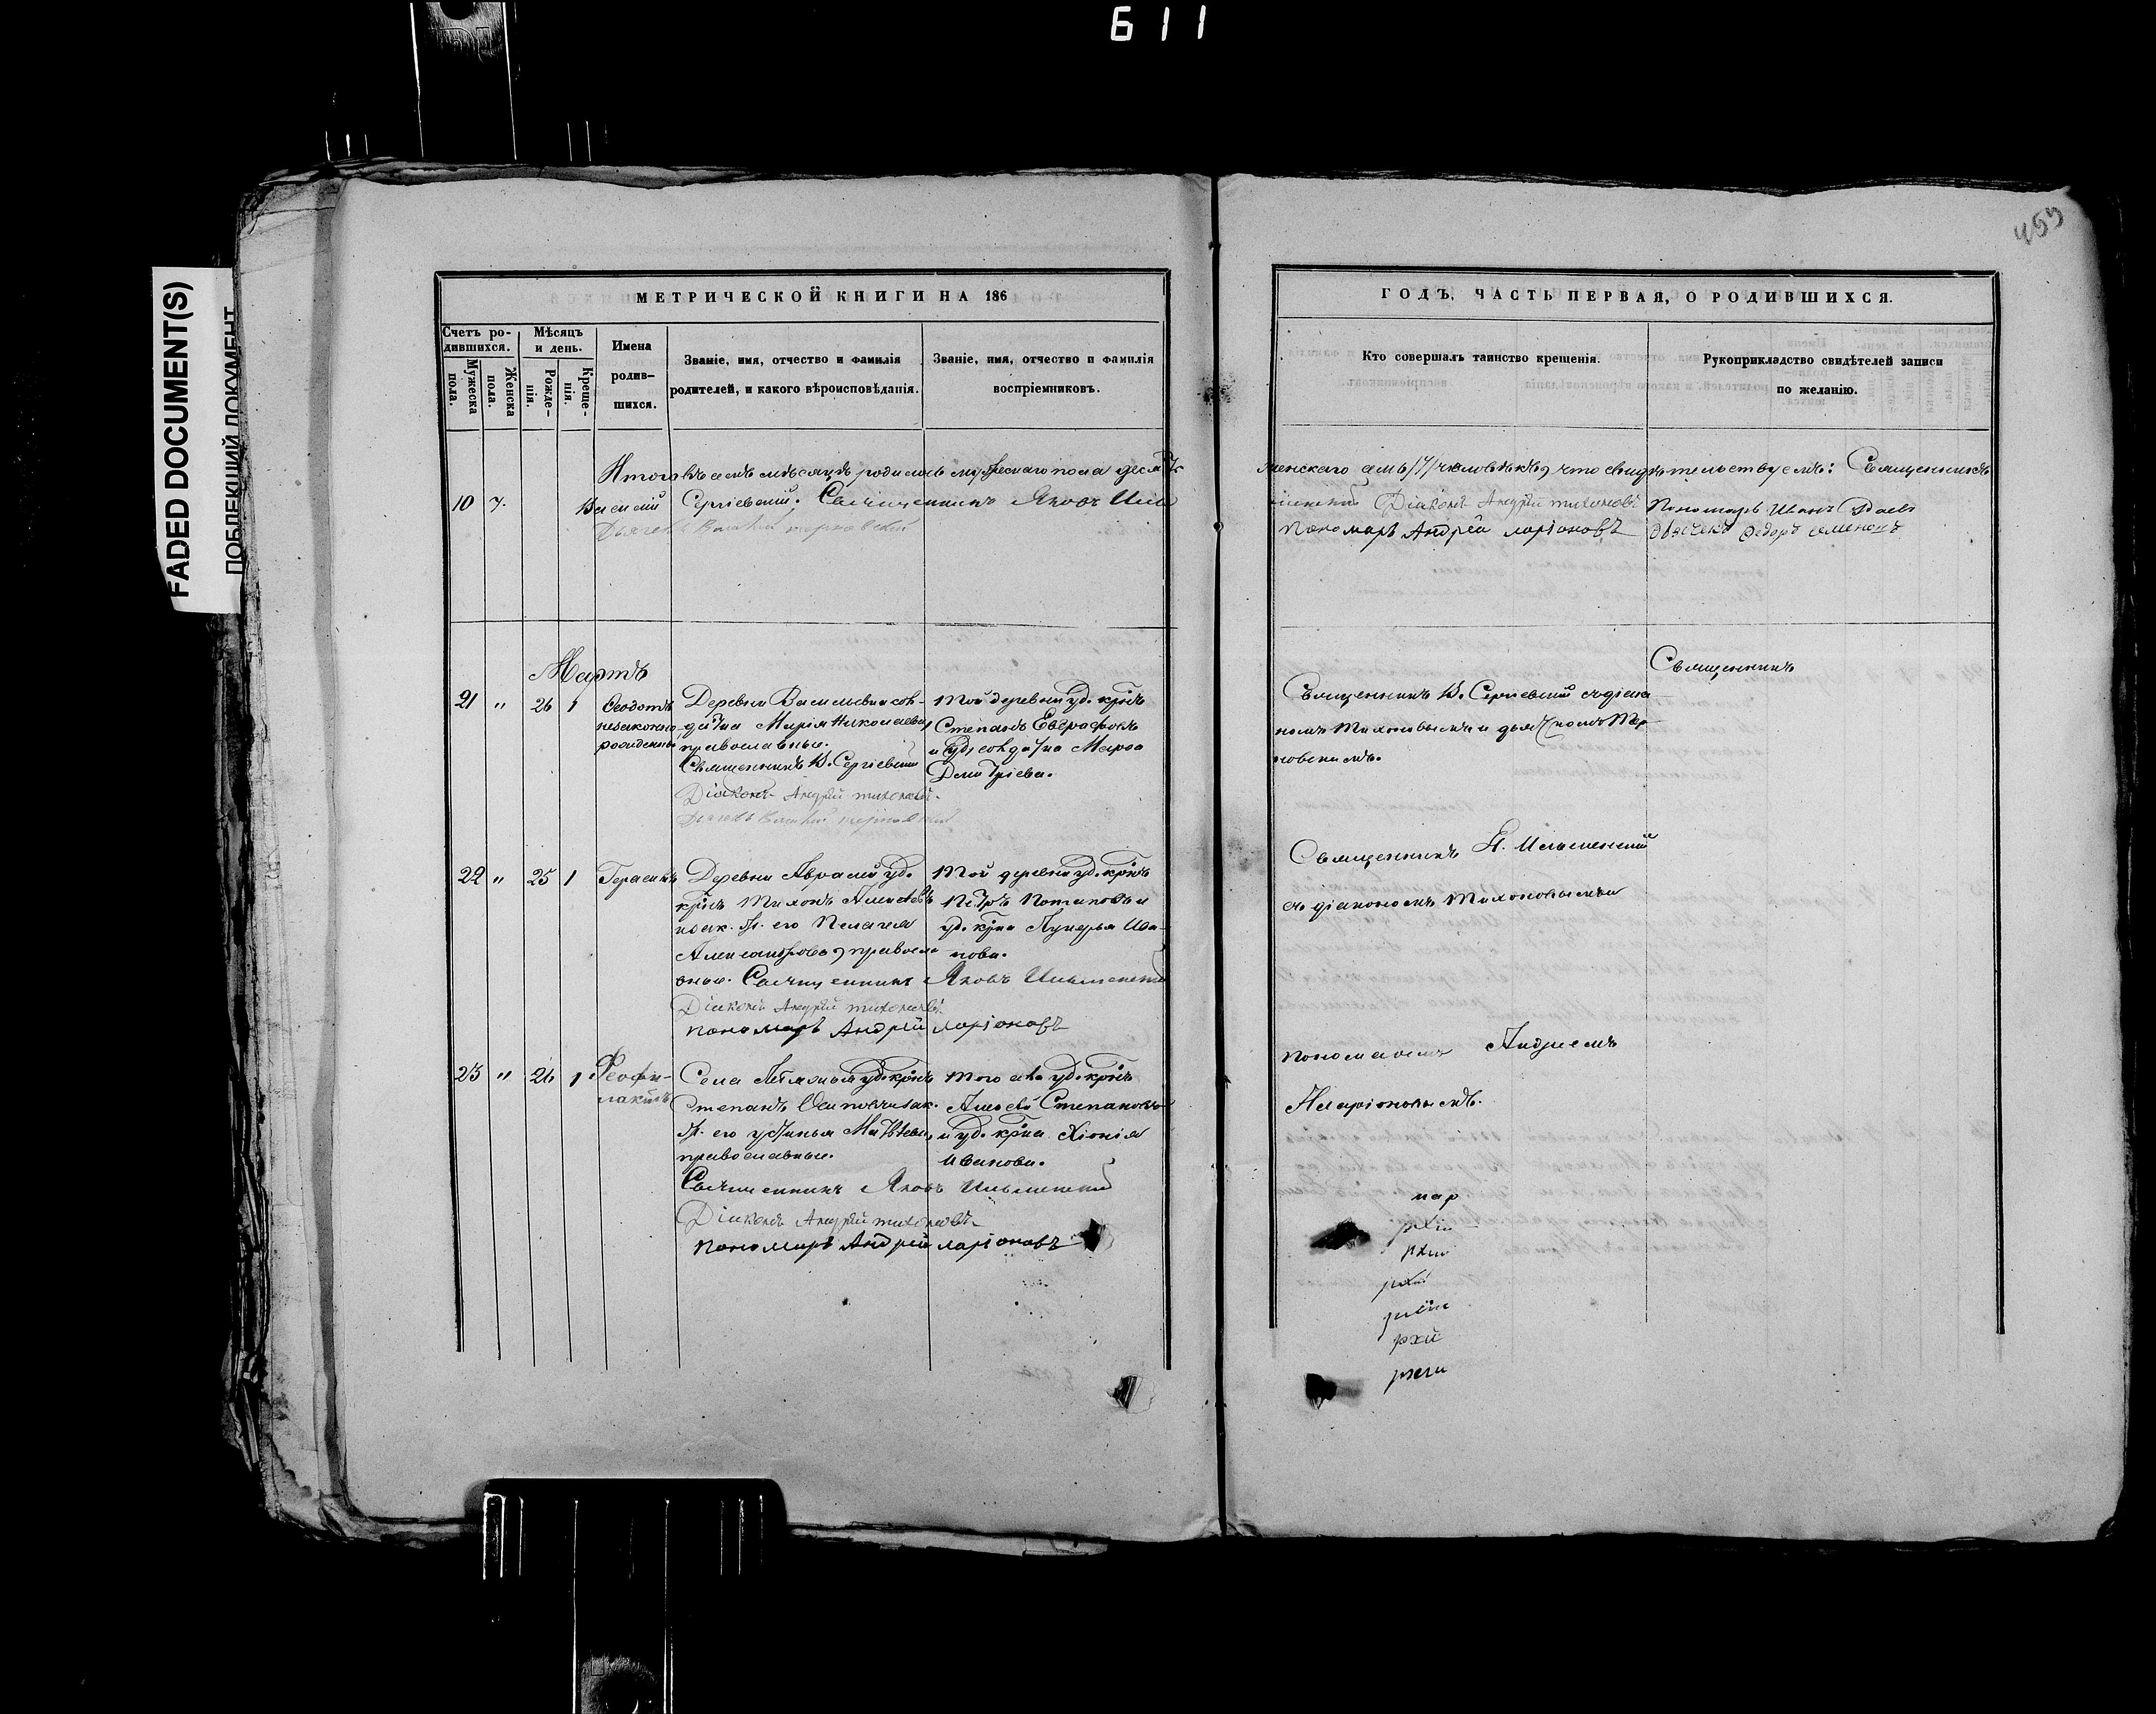 611
459
FADED DOCUMENT(S)
ПОБЛЕКШИЙ ДОКУМЕНТ
МЕТРИЧЕСКОЙ КНИГИ НА 186
ГОДЪ, ЧАСТЬ ПЕРВАЯ, О РОДИВШИХСЯ.
Счетъ ро-
дившихся.
Мужеска
пола.
Женска
пола.
Мѣсяцъ
и день.
Рожде-
нія.
Креще-
нія.
Имена
родив-
шихся.
Званіе, имя, отчество и фамилія
родителей, и какого вѣроисповѣданія.
Званіе, имя, отчество и фамилія
воспріемниковъ.
Кто совершалъ таинство крещенія.
Рукоприкладство свидѣтелей записи
по желанію.
Итого въ семъ мѣсяцѣ родилось мужескаго пола десять
женскаго семь /7/ человѣкъ, что свидѣтельствуемъ: Священникъ
10 7. Василий Сергіевский. Священникъ Яковъ Иль
Діаконъ Андрей Тихоновъ Пономарь Иванъ
Дьячекъ
Пономарь Андрей Ларіоновъ дьячекъ Федоръ Семеновъ
Мартъ
Священникъ
21 " 26 1 Феодотъ
незаконно-
рожденный
Деревни Васильевки сол-
датка Марія Николаева,
православные.
Священникъ В. Сергіевский
Діаконъ Андрей Тихоновъ.
Той деревни уд. крнъ
Степанъ Евграфовъ
и солдатка Марфа
Дмитріева.
Священникъ В. Сергіевский съ діако-
номъ Тихоновымъ и дьячкомъ Тер-
новскимъ.
22 " 25 1 Герасимъ
Деревни Авралей уд.
крнъ Тихонъ Алексѣевъ
и зак. ж. его Пелагея
Александрова, правосла-
вные. Священникъ Яковъ Ильменский
Діаконъ Андрей Тихоновъ.
Пономарь Андрей Ларіоновъ
Той деревни уд. крнъ
Петръ Потаповъ и
уд. крка Лукерья Ива-
нова.
Священникъ Я. Ильменский
съ діакономъ Тихоновымъ и
пономаремъ Андреемъ
Иларіоновымъ.
23 " 26 1 Феофи-
лактъ
Села уд. крнъ
Степанъ Осиповъ и зак.
ж. его Устинья Матвѣева,
православные.
Священникъ Яковъ Ильменский
Діаконъ Андрей Тихоновъ.
Пономарь Андрей Ларіоновъ
Того села уд. крнъ
Алексѣй Степановъ
и уд. крка Хіонія
Иванова.